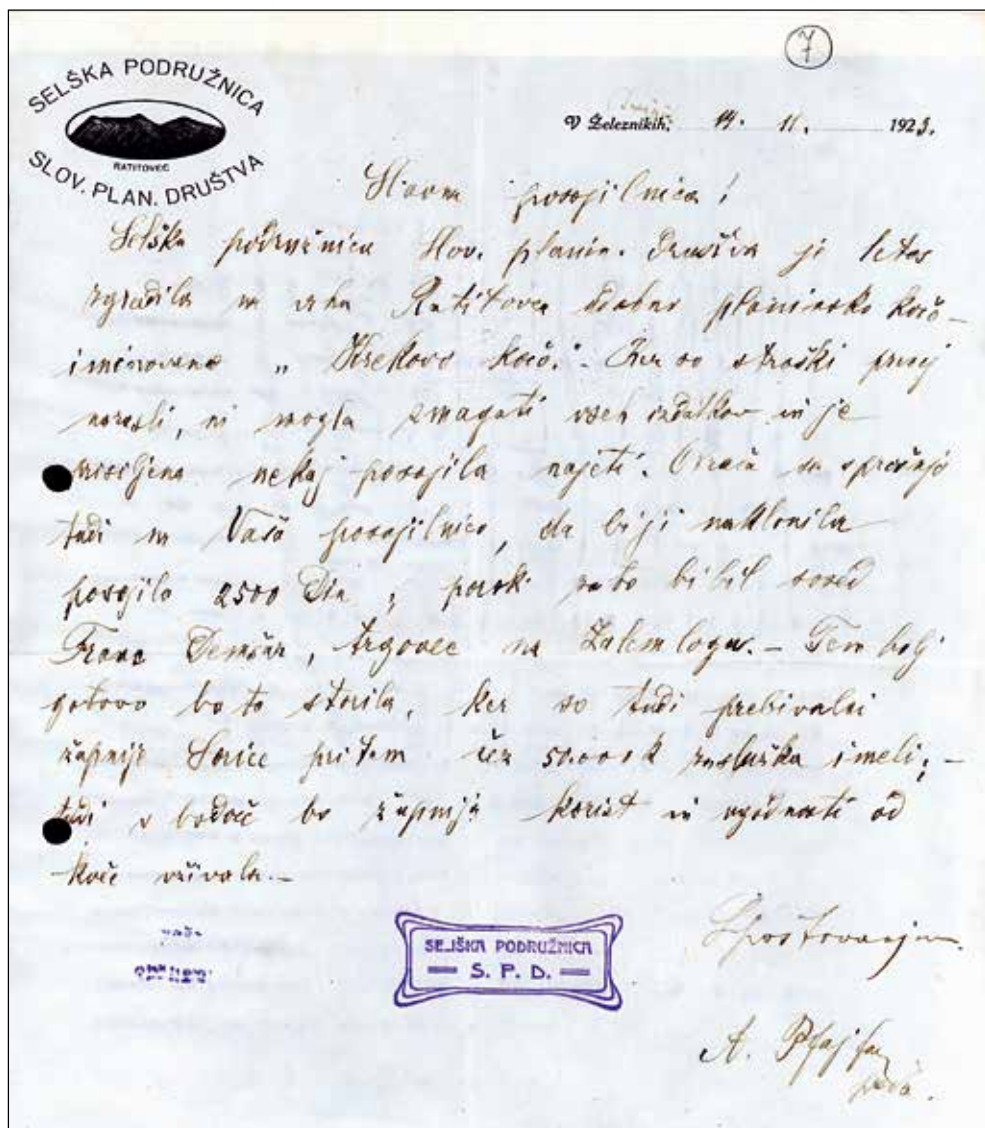 7
SELŠKA PODRUŽNICA
RATITOVEC
SLOV. PLAN. DRUŠTVA
V Železnikih, 14. 11. 1923.
Slavna posojilnica!
Selška podružnica Slov. planin. društva je letos
zgradila na vrhu Ratitovca udobno planinsko kočo –
imenovano „Krekovo kočo". Ker so stroški precej
narasli, ni mogla zmagati vseh izdatkov in je
prisiljena nekaj posojila najeti. Obrača se s prošnjo
tudi na Vašo posojilnico, da bi ji naklonila
posojilo 2500 Din, porok za to bi bil
Franc Demšar, trgovec na Zalem logu. – Tem bolj
gotovo bo to storila, ker so tudi prebivalci
župnije Sorice pri tem čez 50.000 K zaslužka imeli; –
tudi v bodoče bo župnija korist in ugodnosti od
koče uživala. –
Spoštovanjem
SELŠKA PODRUŽNICA
S. P. D.
A. Pfajfar